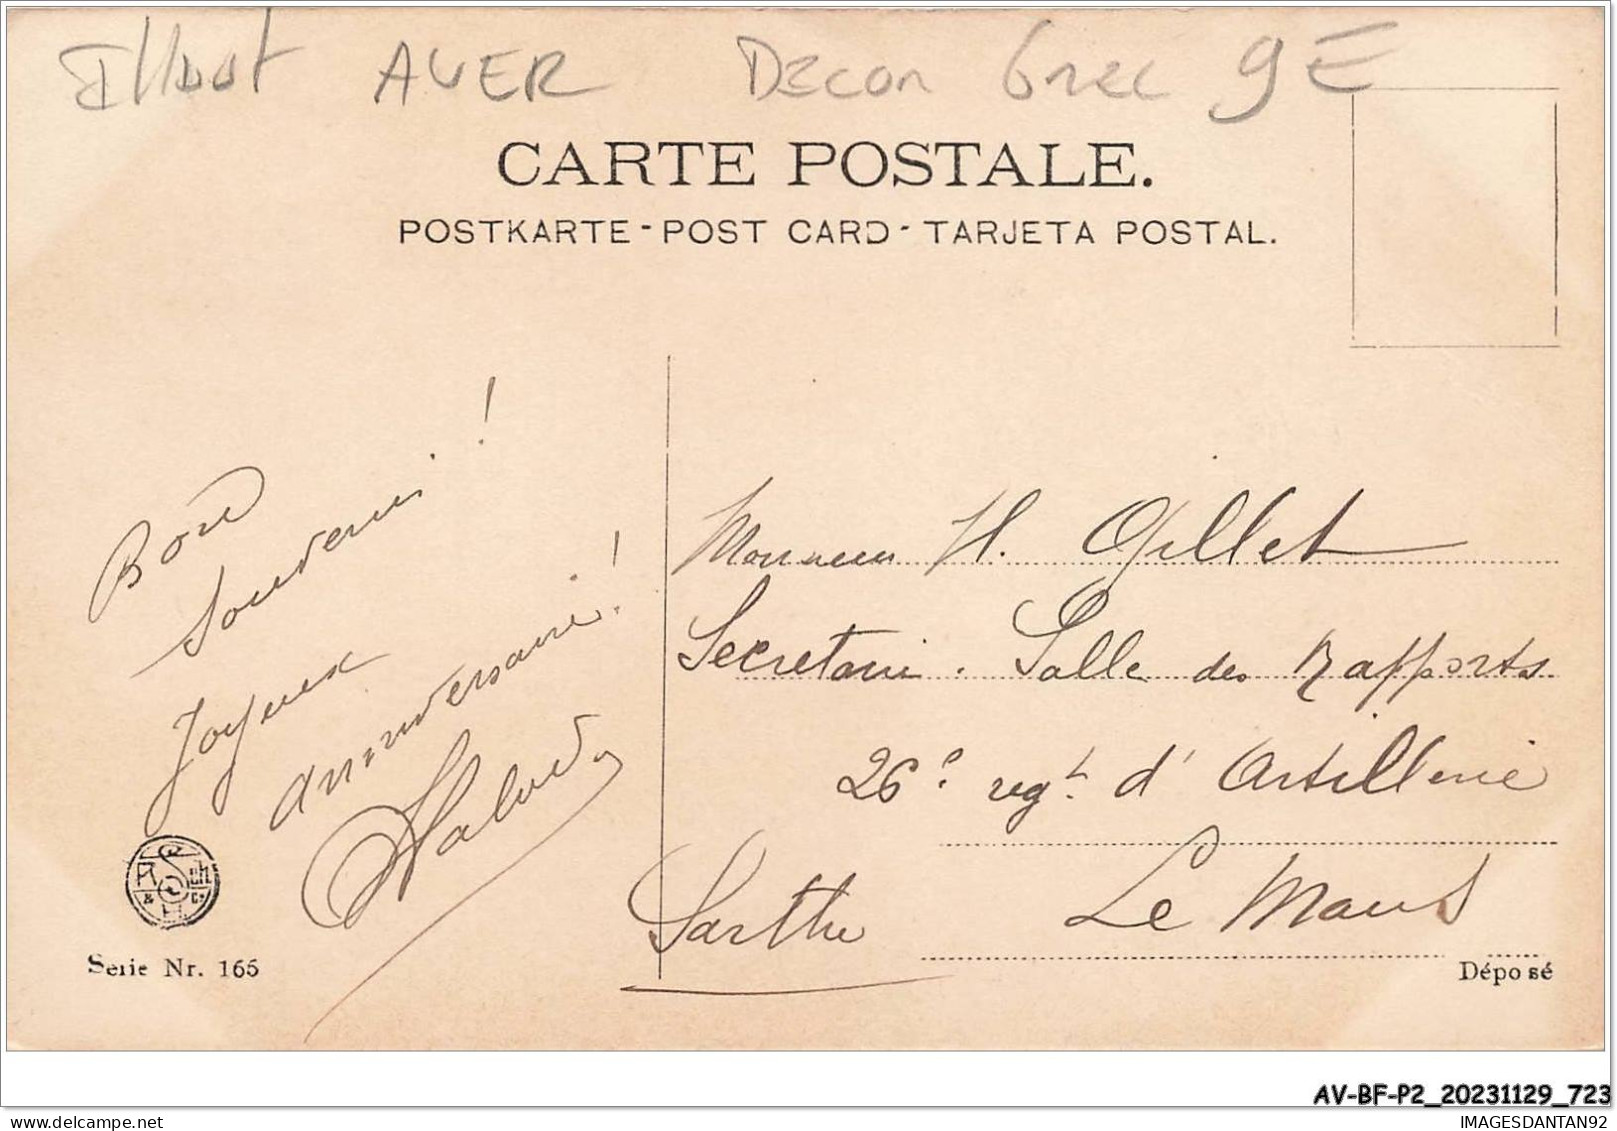 Illust AUER Decor Grec 9E
CARTE POSTALE.
POSTKARTE - POST CARD - TARJETA POSTAL.
Bon
Souvenir !
Joyeux
anniversaire !
Monsieur H. Gillet
Secretaire . Salle des Rapports
26e regt d'Artillerie
Le Mans
Sarthe
Serie Nr. 165
Déposé
AV-BF-P2_20231129_723
delcampe.net
IMAGESDANTAN92